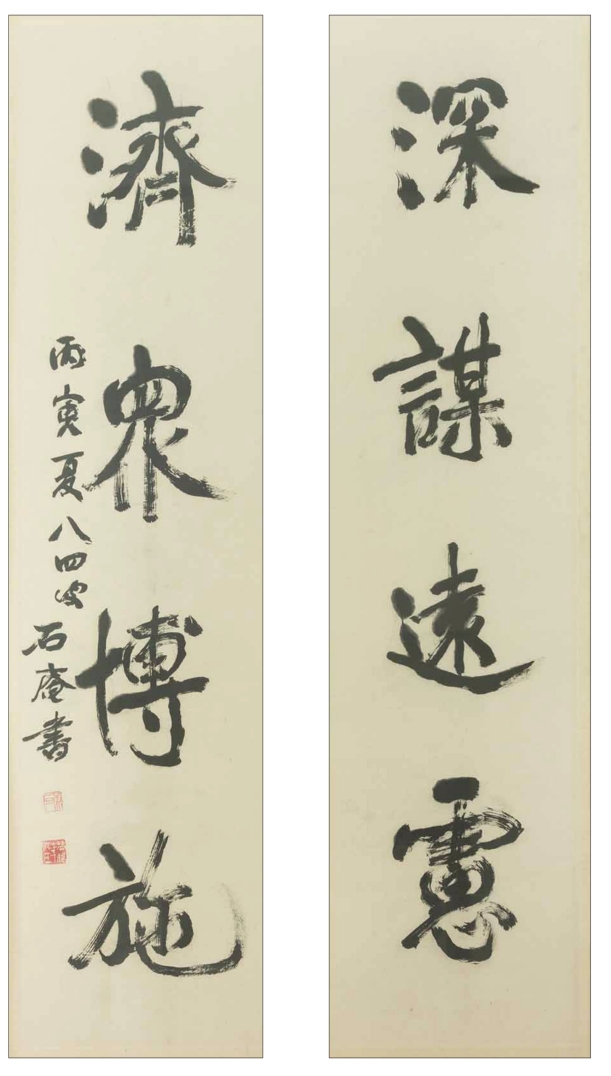 深謀遠慮
濟眾博施
丙寅夏八四叟
石庵書